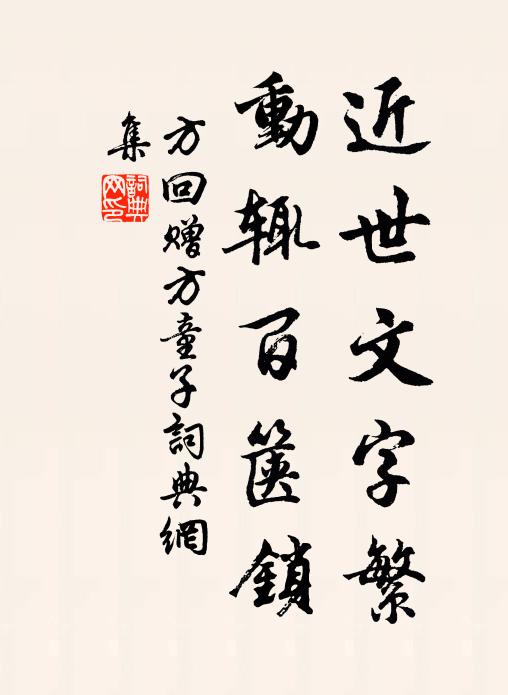 近世文字繁
動輒百篋鎖
方回贈方童子詞典網
集
詞典網印